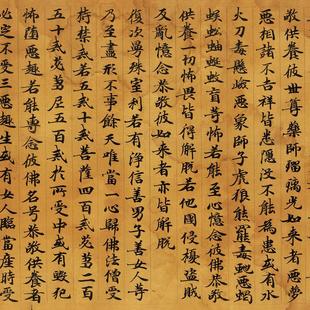 敬供養彼世尊藥師瑠璃光如來者惡夢
惡相諸不吉祥皆悉隱沒不能為患或有水
火刀毒懸嶮惡象師子虎狼熊羆毒蛇惡蠍
蜈蚣蚰蜒蚊虻等怖若能至心憶念彼佛恭敬
供養一切怖畏皆得解脫若他國侵擾盜賊
反亂憶念恭敬彼如來者亦皆解脫
復次曼殊室利若有淨信善男子善女人等
乃至盡形不事餘天唯當一心歸佛法僧受
持禁戒若五戒十戒菩薩四百戒苾芻二百
五十戒苾芻尼五百戒於所受中或有毀犯
怖墮惡趣若能專念彼佛名号恭敬供養者
必定不受三惡趣生或有女人臨當產時受